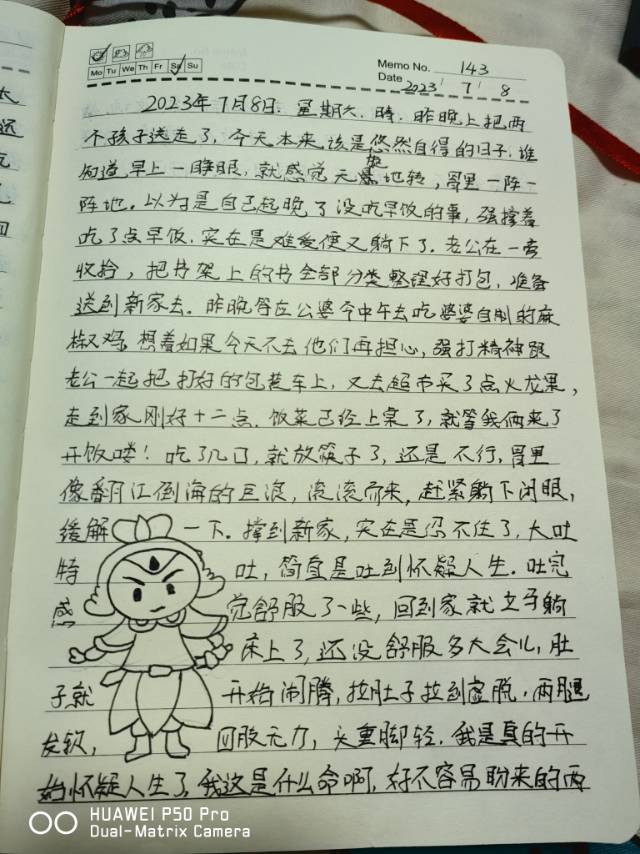 Mo Tu We Th Fr Sa Su
Memo No. 143
Date 2023 / 7 / 8
2023年7月8日. 星期六. 晴. 昨晚上把两
个孩子送走了, 今天本来该是悠然自得的日子. 谁
知道早上一睁眼, 就感觉天旋地转, 胃里一阵一
阵地. 以为是自己起晚了没吃早饭的事, 强撑着
吃了点早饭, 实在是难受便又躺下了. 老公在一旁
收拾, 把书架上的书全部分类整理好打包, 准备
送到新家去. 昨晚答应公婆今中午去吃婆婆自制的麻
椒鸡. 想着如果今天不去他们再担心, 强打精神跟
老公一起把打好的包装车上, 又去超市买了点火龙果,
走到家刚好十二点. 饭菜已经上桌了, 就等我俩来了
开饭喽! 吃了几口, 就放筷子了, 还是不行, 胃里
像翻江倒海的巨浪, 滚滚而来, 赶紧躺下闭眼,
缓解一下. 撑到新家, 实在是忍不住了, 大吐
特吐, 简直是吐到怀疑人生. 吐完
感觉舒服了一些, 回到家就立马躺
床上了, 还没舒服多大会儿, 肚
子就开始闹腾, 拉肚子拉到虚脱. 两腿
发软, 四肢无力, 头重脚轻. 我是真的开
始怀疑人生了, 我这是什么命啊, 好不容易盼来的两
HUAWEI P50 Pro
Dual-Matrix Camera